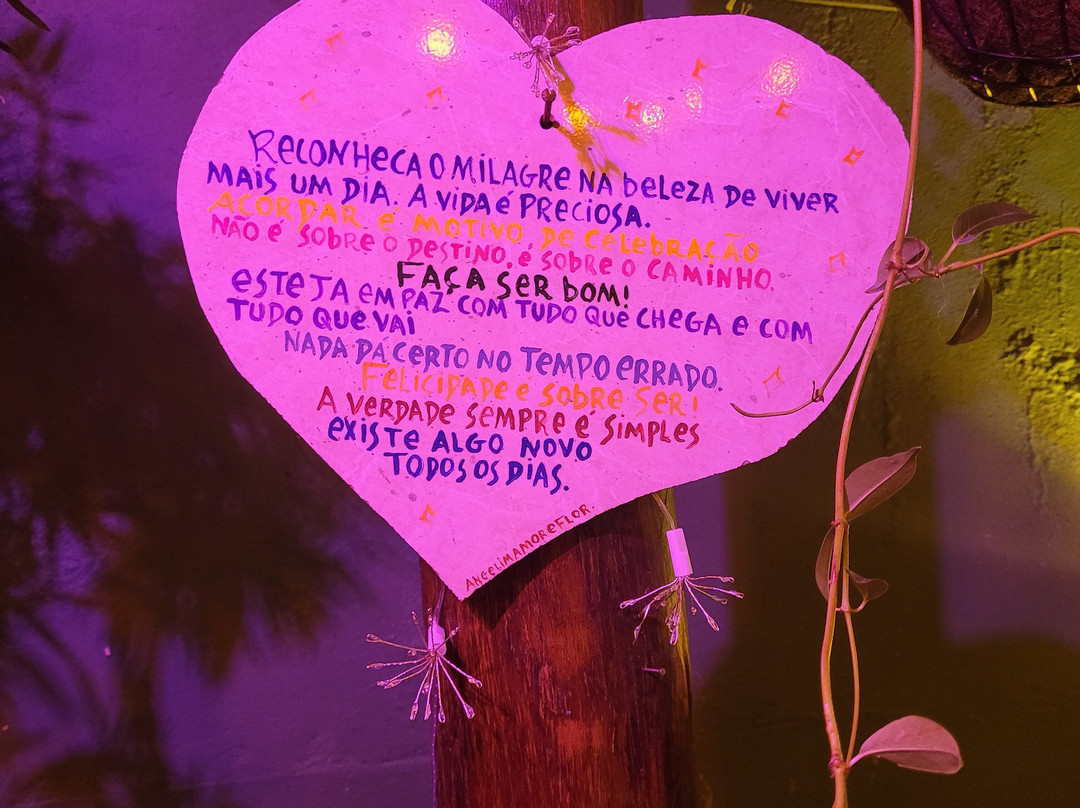 RECONHECA O MILAGRE NA beLeZA De VIVER
MAIS UM DIA. A VIDA é PRECIOSA.
ACORDAR é MOTIVO DE CeLebRAÇÃO
NÃO é SObRe O DESTINO, é SObRe O CAMINHO.
FAÇA SER bOM!
eSTeJA eM PAZ COM TUDO QUe CHeGA e COM
TUDO QUe VAI
NADA DÁ CeRTO NO TeMPO eRRADO.
FeLICIDADe é SObRe SeR!
A VERDADE SEMPRE é SIMPLES
eXISTe ALGO NOVO
TODOS OS DIAS.
ANGELIMAMOReFLOR.